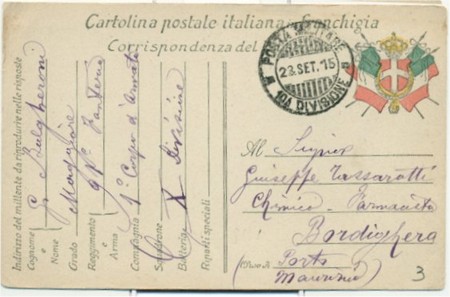 Cartolina postale italiana in franchigia
Corrispondenza del
POSTA MILITARE
23.SET.15
10A DIVISIONE
Indirizzo del mittente da riprodurre nelle risposte
Cognome G. Bulgheroni
e
Nome
Grado Maggiore
Reggimento 91° Fanteria
e
Arma
Compagnia 1° Corpo d'Armata
Squadrone
Batteria X Divisione
Riparti speciali
Al Signor
Giuseppe Tassarotti
Chimico Farmacista
Bordighera
Porto
Maurizio
3